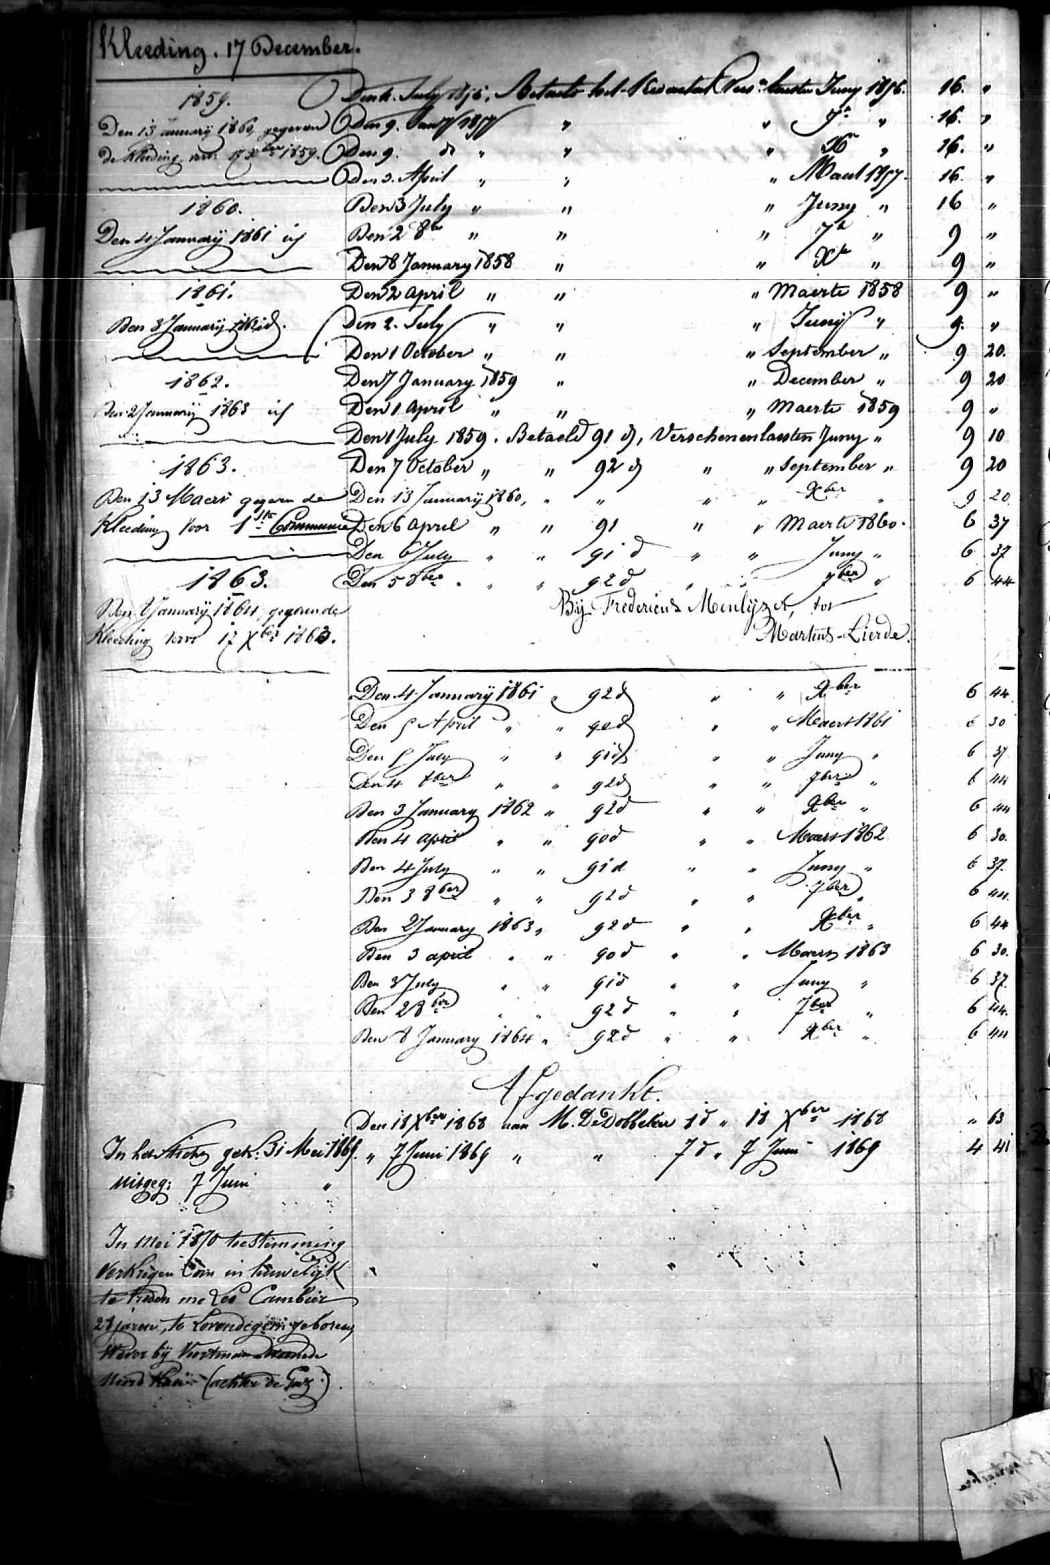 Kleeding. 17 December.
1859.
Den 13 January 1860, gegeven
de kleeding voor 17 Xber 1859.
1860.
Den 4 January 1861 id
1861.
Den 3 January 1862 id.
1862.
Den 2 January 1863 id
1863.
Den 13 Maert gegeven de
Kleeding voor 1ste Communie
1863.
Den 2 January 1864, gegeven de
Kleeding voor 17 Xber 1863.
In het Sticht gek: 31 Mei 1869.
uitgeg: 7 Juni "
In mei 1870 toestemming
verkregen om in huwelijk
te treden met Leo Cambier
28 jaren, te Lovendegem geboren
Wever bij
(achter de Gaz)
Den 4. July 1856, Betaelt het Kwartael Vers: laesten Juny 1856. 16. "
Den 9. " " 7r " 16. "
Den 9. do " " " Xr " 16. "
Den 3. April " " " Maert 1857. 16. "
Den 3 July " " " Juny " 16 "
Den 2 8br " " " 7r " 9 "
Den 8 January 1858 " " Xr " 9 "
Den 2 April " " " Maerte 1858 9 "
Den 2. July " " " Juny " 9. "
Den 1 October " " " September " 9 20.
Den 7 January 1859 " " December " 9 20
Den 1 April " " " Maerte 1859 9 "
Den 1 July 1859. Betaeld 91 d, Verschenen laesten Juny " 9 10
Den 7 October " " 92 d " " September " 9 20
Den 13 January 1860, " " " " Xber " 9 20
Den 6 April " " 91 " " Maerte 1860. 6 37
Den 6 July " " 91 d " " Juny " 6 37
Den 5 8ber " " 92 d " " 7ber " 6 44
Bij Fredericus Menlyzet, tot
Martens-Lierde.
Den 4 January 1861 " 92 d " " Xber 6 44
Den 5 April " " 90 d " " Maert 1861 6 30
Den 5 July " " 91 d " " Juny " 6 37
Den 4 8ber " " 92 d " " 7ber " 6 44
Den 3 January 1862 " 92 d " " Xber " 6 44
Den 4 April " " 90 d " " Maert 1862 6 30.
Den 4 July " " 91 d " " Juny " 6 37.
Den 3 8ber " " 92 d " " 7ber " 6 44.
Den 2 January 1863 " 92 d " " Xber " 6 44
Den 3 april " " 90 d " " Maert 1863 6 30.
Den 3 July " " 91 d " " Juny " 6 37.
Den 2 8ber " " 92 d " " 7ber " 6 44.
Den 8 January 1864 " 92 d " " Xber " 6 44
Afgedankt.
Den 18 Xber 1868 aan M. De Dobbeleer 1 d " 18 Xber 1868 " 63
" 7 Juni 1869 " " 7 d " 7 Juni 1869 4 41